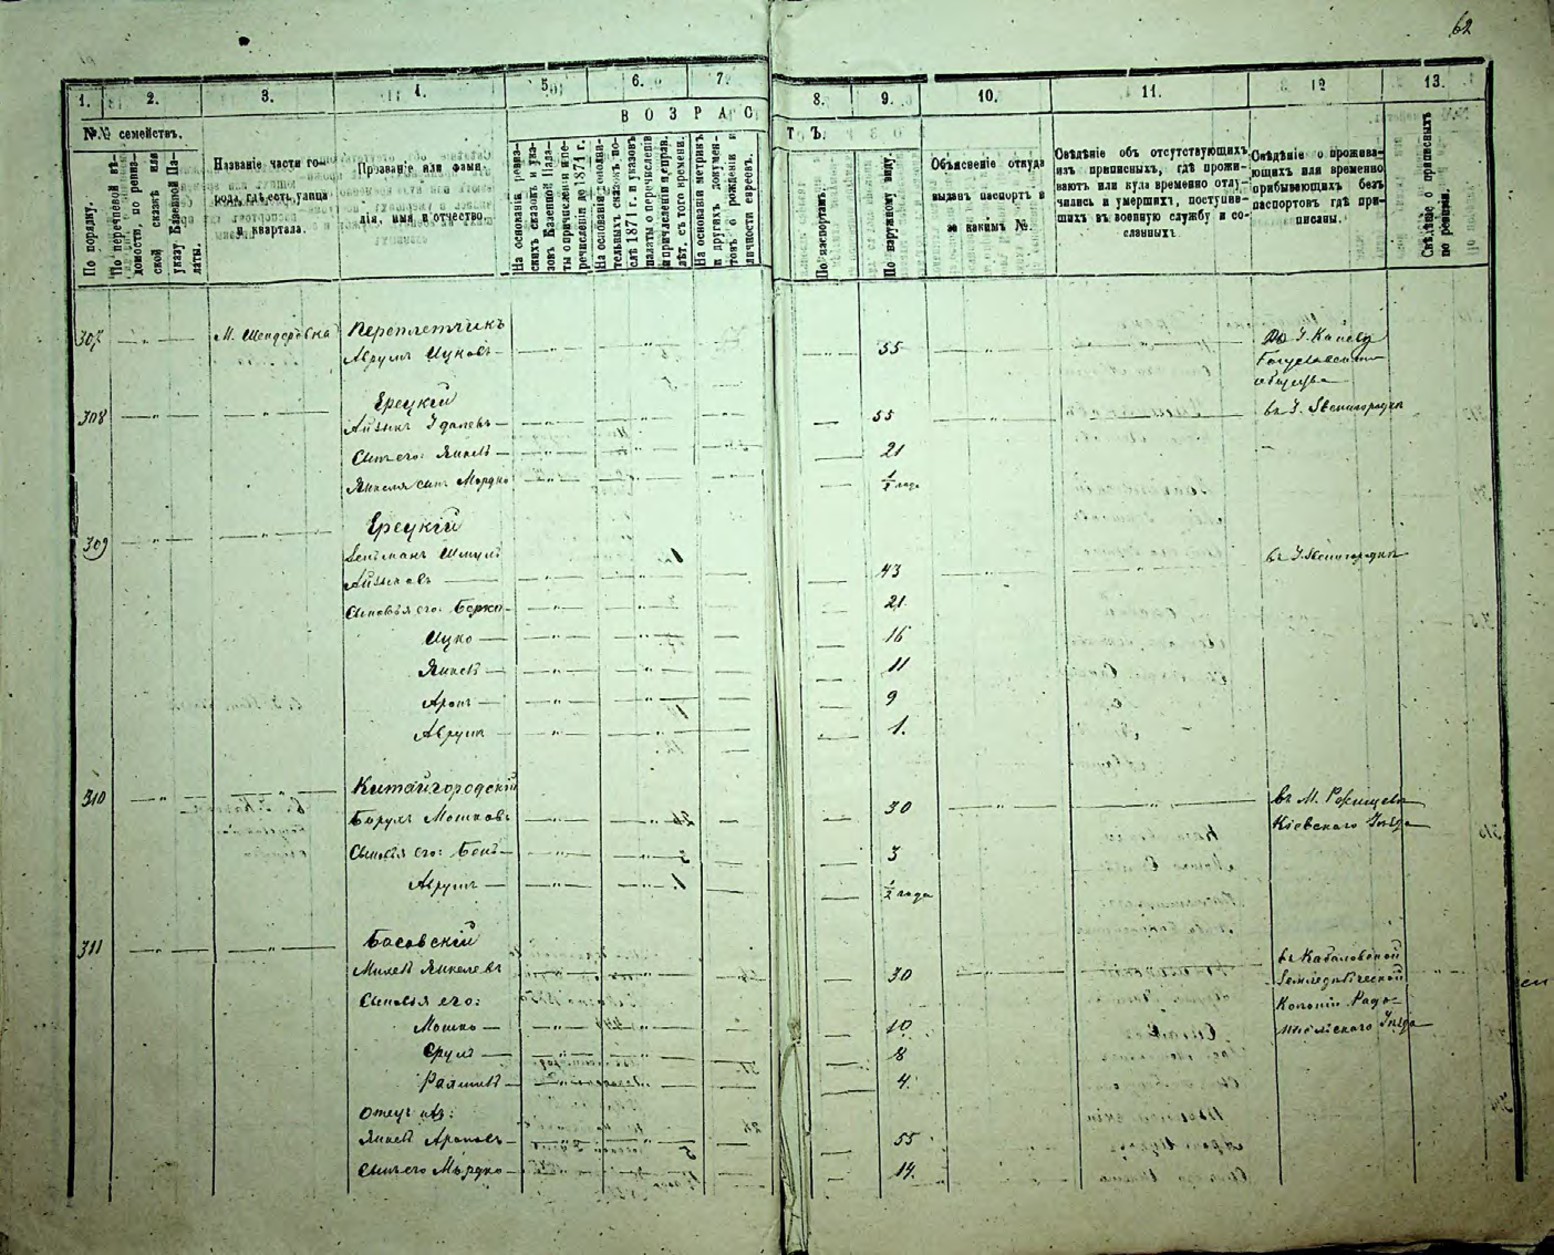 62
1. 2. 3. 4. 5. 6. 7. 8. 9. 10. 11. 12 13.
№№ семействъ.
По порядку.
По перечневой вѣ-
домости, по ревиз-
ской сказкѣ или
указу Казенной Па-
латы.
Названіе части го-
рода, гдѣ есть, улица
и квартала.
Прозваніе или фами-
лія, имя и отчество.
ВОЗРАСТЪ.
На основаніи ревиз-
скихъ сказокъ и ука-
зовъ Казенной Пала-
ты о причисленіи и пе-
речисленіи до 1871 г.
На основаніи дополни-
тельныхъ сказокъ по-
слѣ 1871 г. и указовъ
палаты о перечисленіи
и причисленіи
лѣт. съ того времени.
На основаніи метрикъ
и другихъ докумен-
товъ о рожденіи и
личности евреевъ.
По паспортамъ.
По наружному виду.
Объясненіе откуда
выданъ паспортъ и
за какимъ №.
Свѣдѣніе объ отсутствующихъ
изъ приписныхъ, гдѣ прожи-
ваютъ или куда временно отлу-
чились и умершихъ, поступив-
шихъ въ военную службу и со-
сланныхъ.
Свѣдѣніе о прожива-
ющихъ или временно
прибывающихъ безъ
паспортовъ гдѣ при-
писаны.
Свѣдѣніе о приписныхъ
по ревизіи.
307 М. Шендеровка Переплетчикъ
Аврумъ Ицковъ 55 Г. Каневѣ
общества
308 Ерецкій
Айзикъ 55 въ Г. Звенигородкѣ
Сынъ его: Янкель 21
Янкеля сынъ Мордко ½ года
309 Ерецкій
Зельманъ Шмуль 1 въ Г. Звенигородкѣ
Айзиковъ 43
Сыновья его: Берко 21
Ицко 16
Янкель 11
Аронъ 9
Аврумъ 1.
310 Китайгородскій
Борухъ Мошковъ 26 30 въ М. Ржищевѣ
Кіевскаго Уѣзда
Сыновья его: Бенъ 3 3
Аврумъ 1 ½ года
311 Басовскій
Янкелевъ 30 въ Кабаловской
Земледѣльческой
Сыновья его: Колоніи Радо-
Мошко 10 мысльскаго Уѣзда
Срулъ 8
4.
Отецъ ихъ:
Янкель Ароновъ 55
Сынъ его Мордко 14.